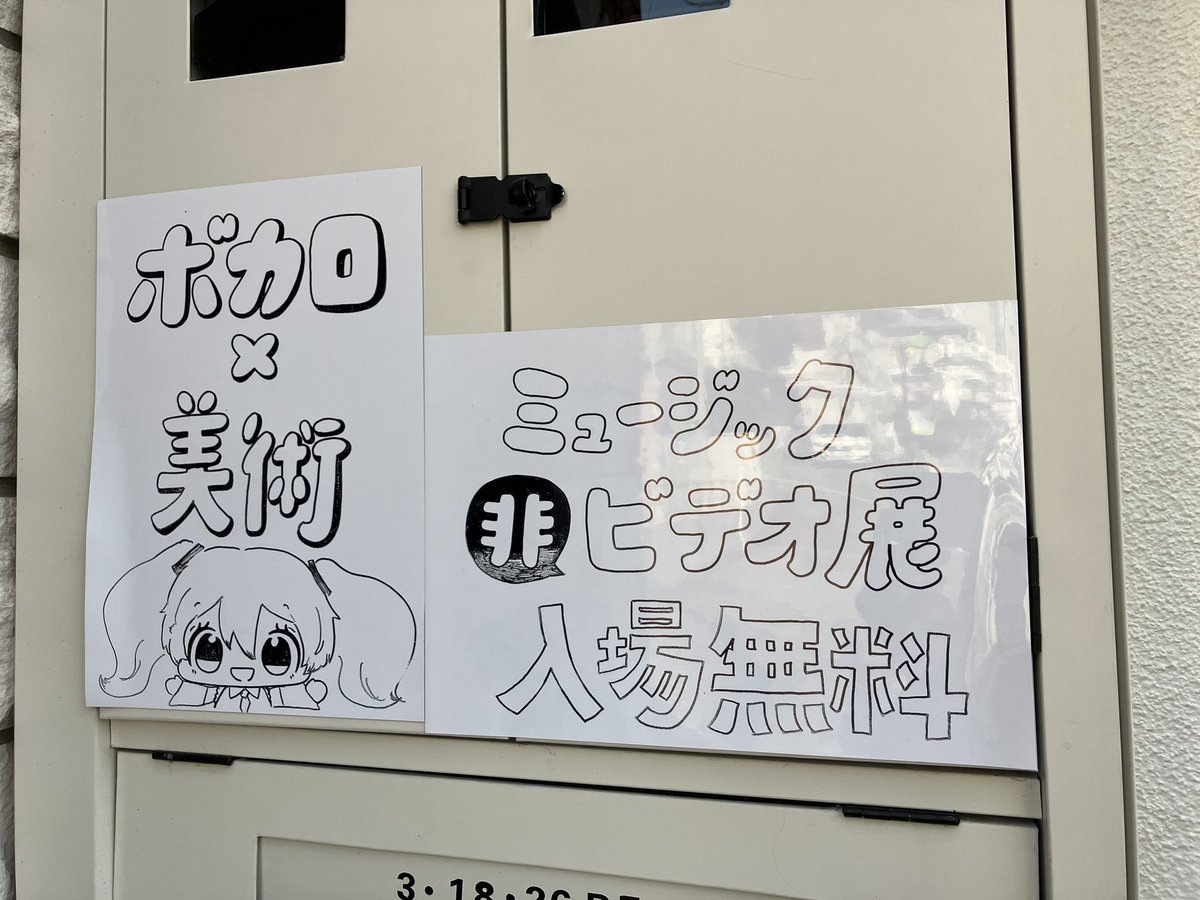 ボカロ
×
美術
ミュージック
非ビデオ展
入場無料
3・18・26